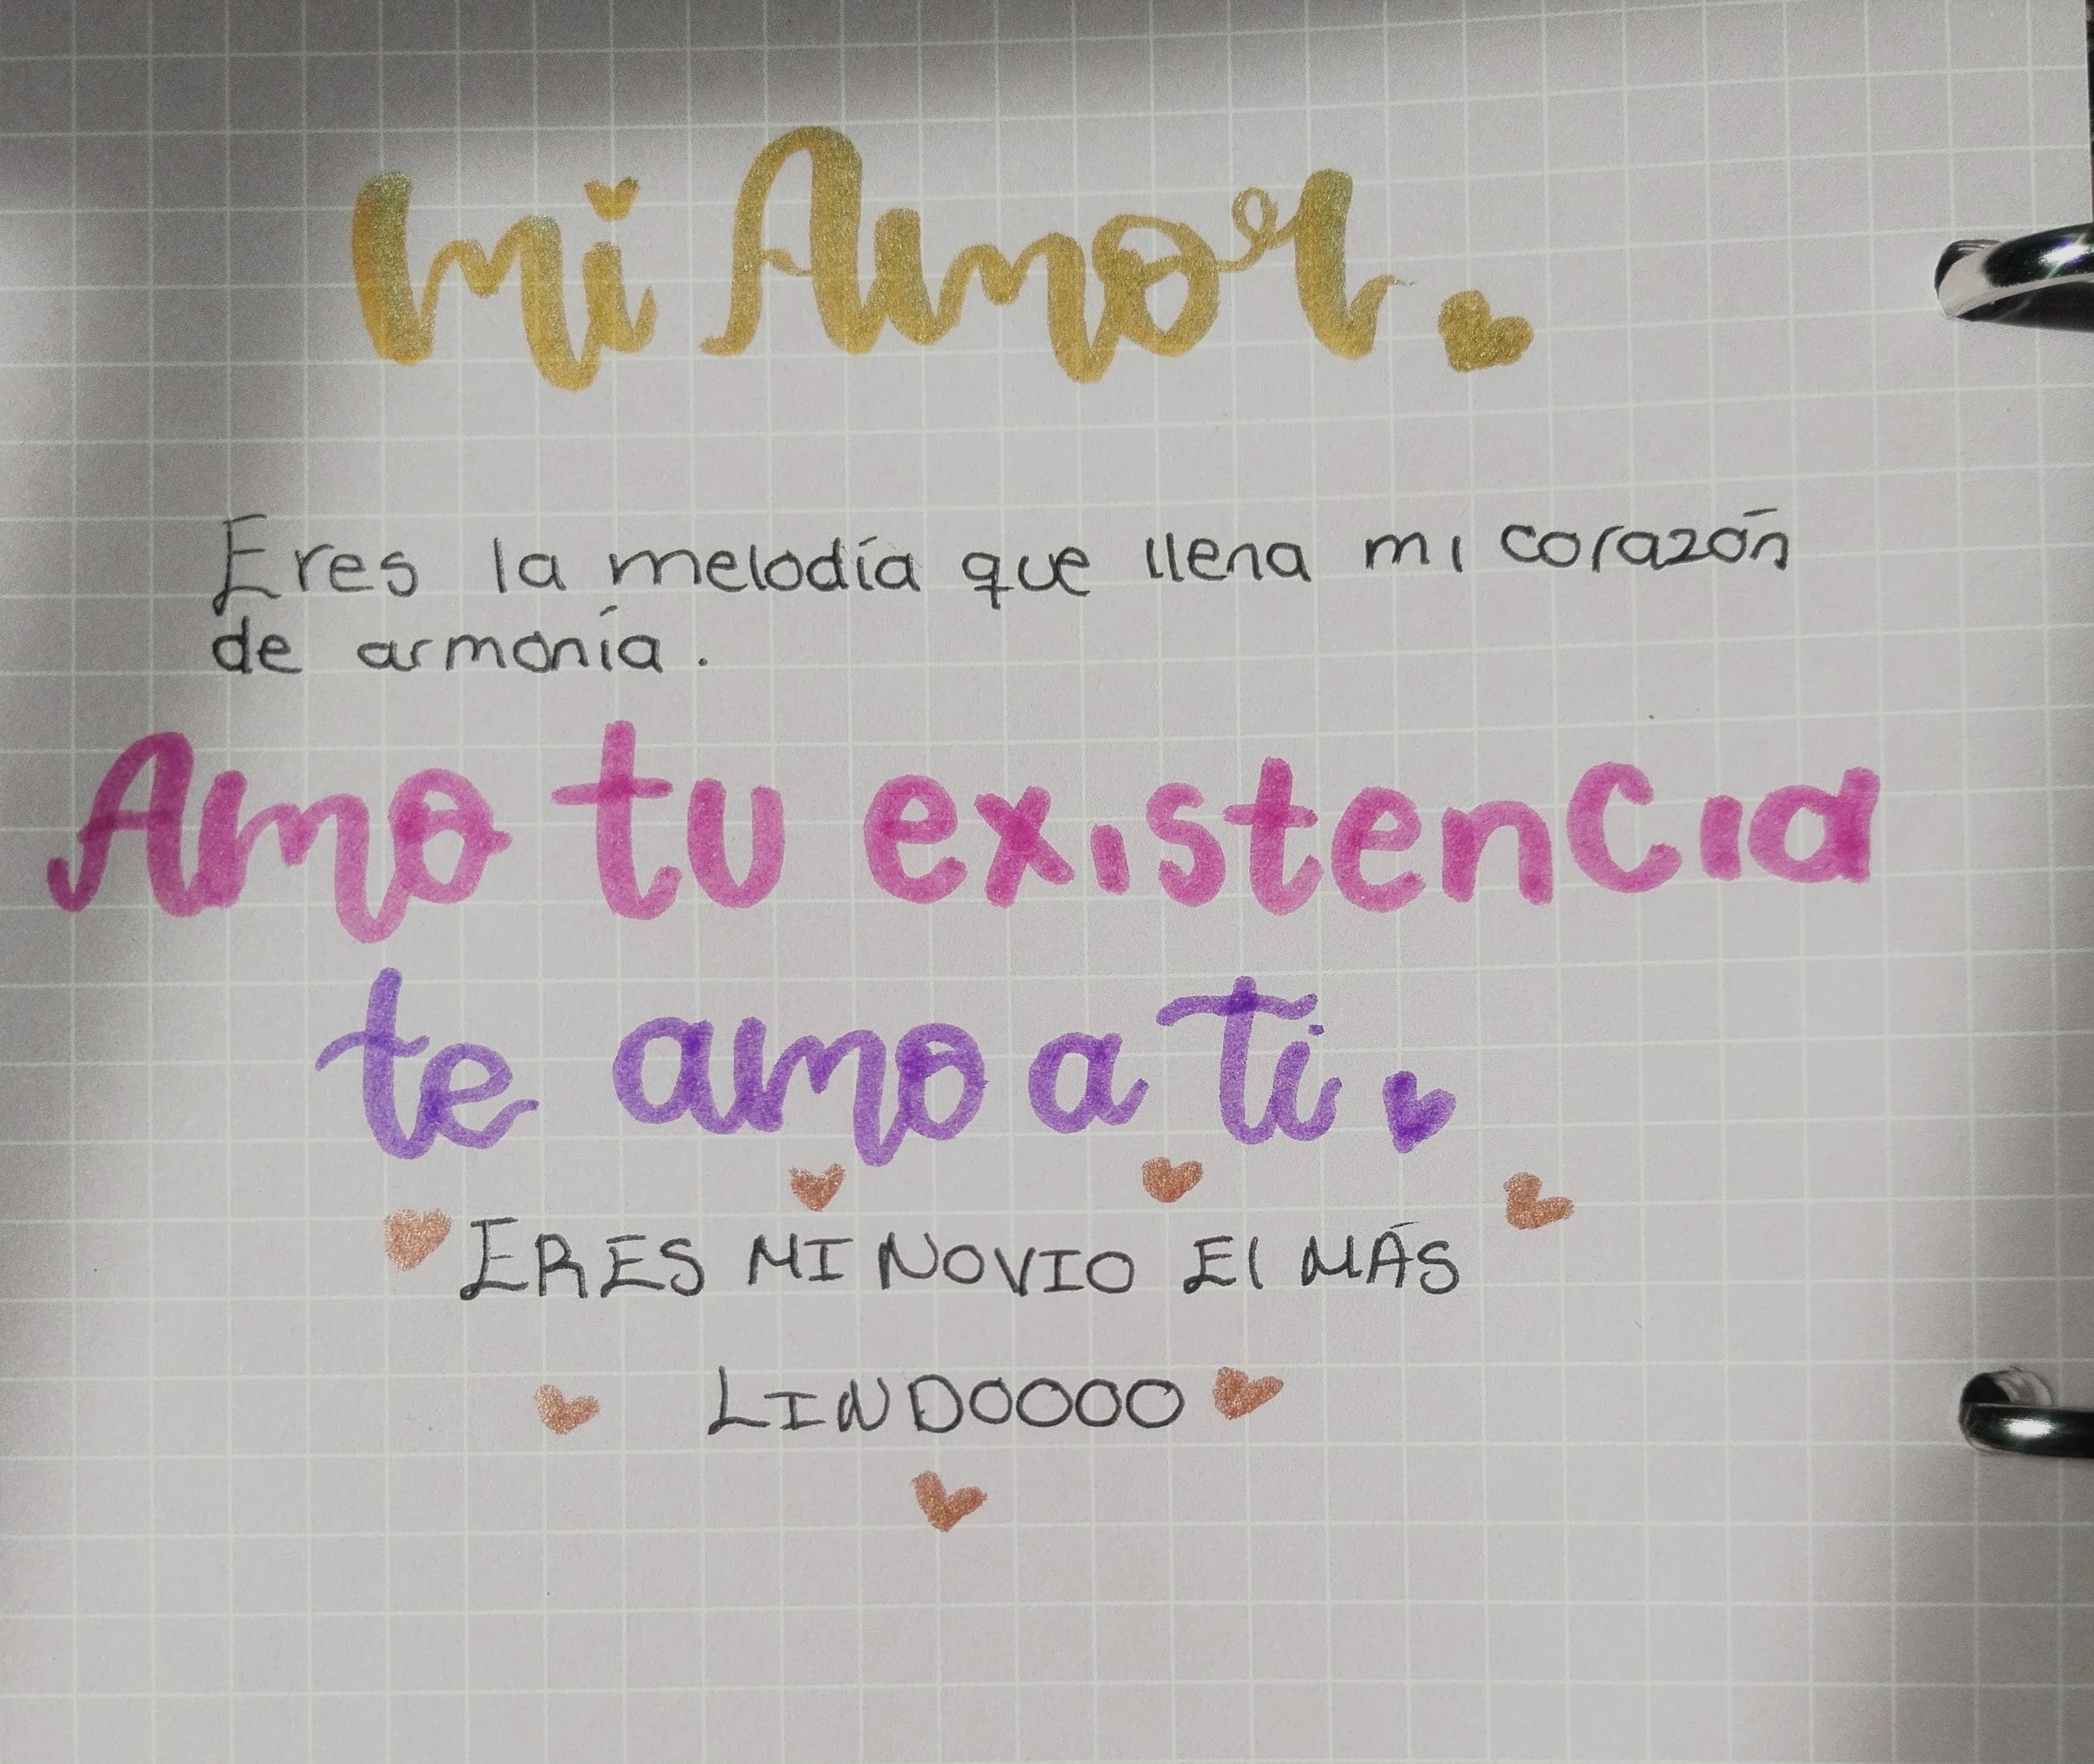 mi Amor.
Eres la melodía que llena mi corazón
de armonía.
Amo tu existencia
te amo a Ti.
ERES MI NOVIO El MÁS
LINDOOOO